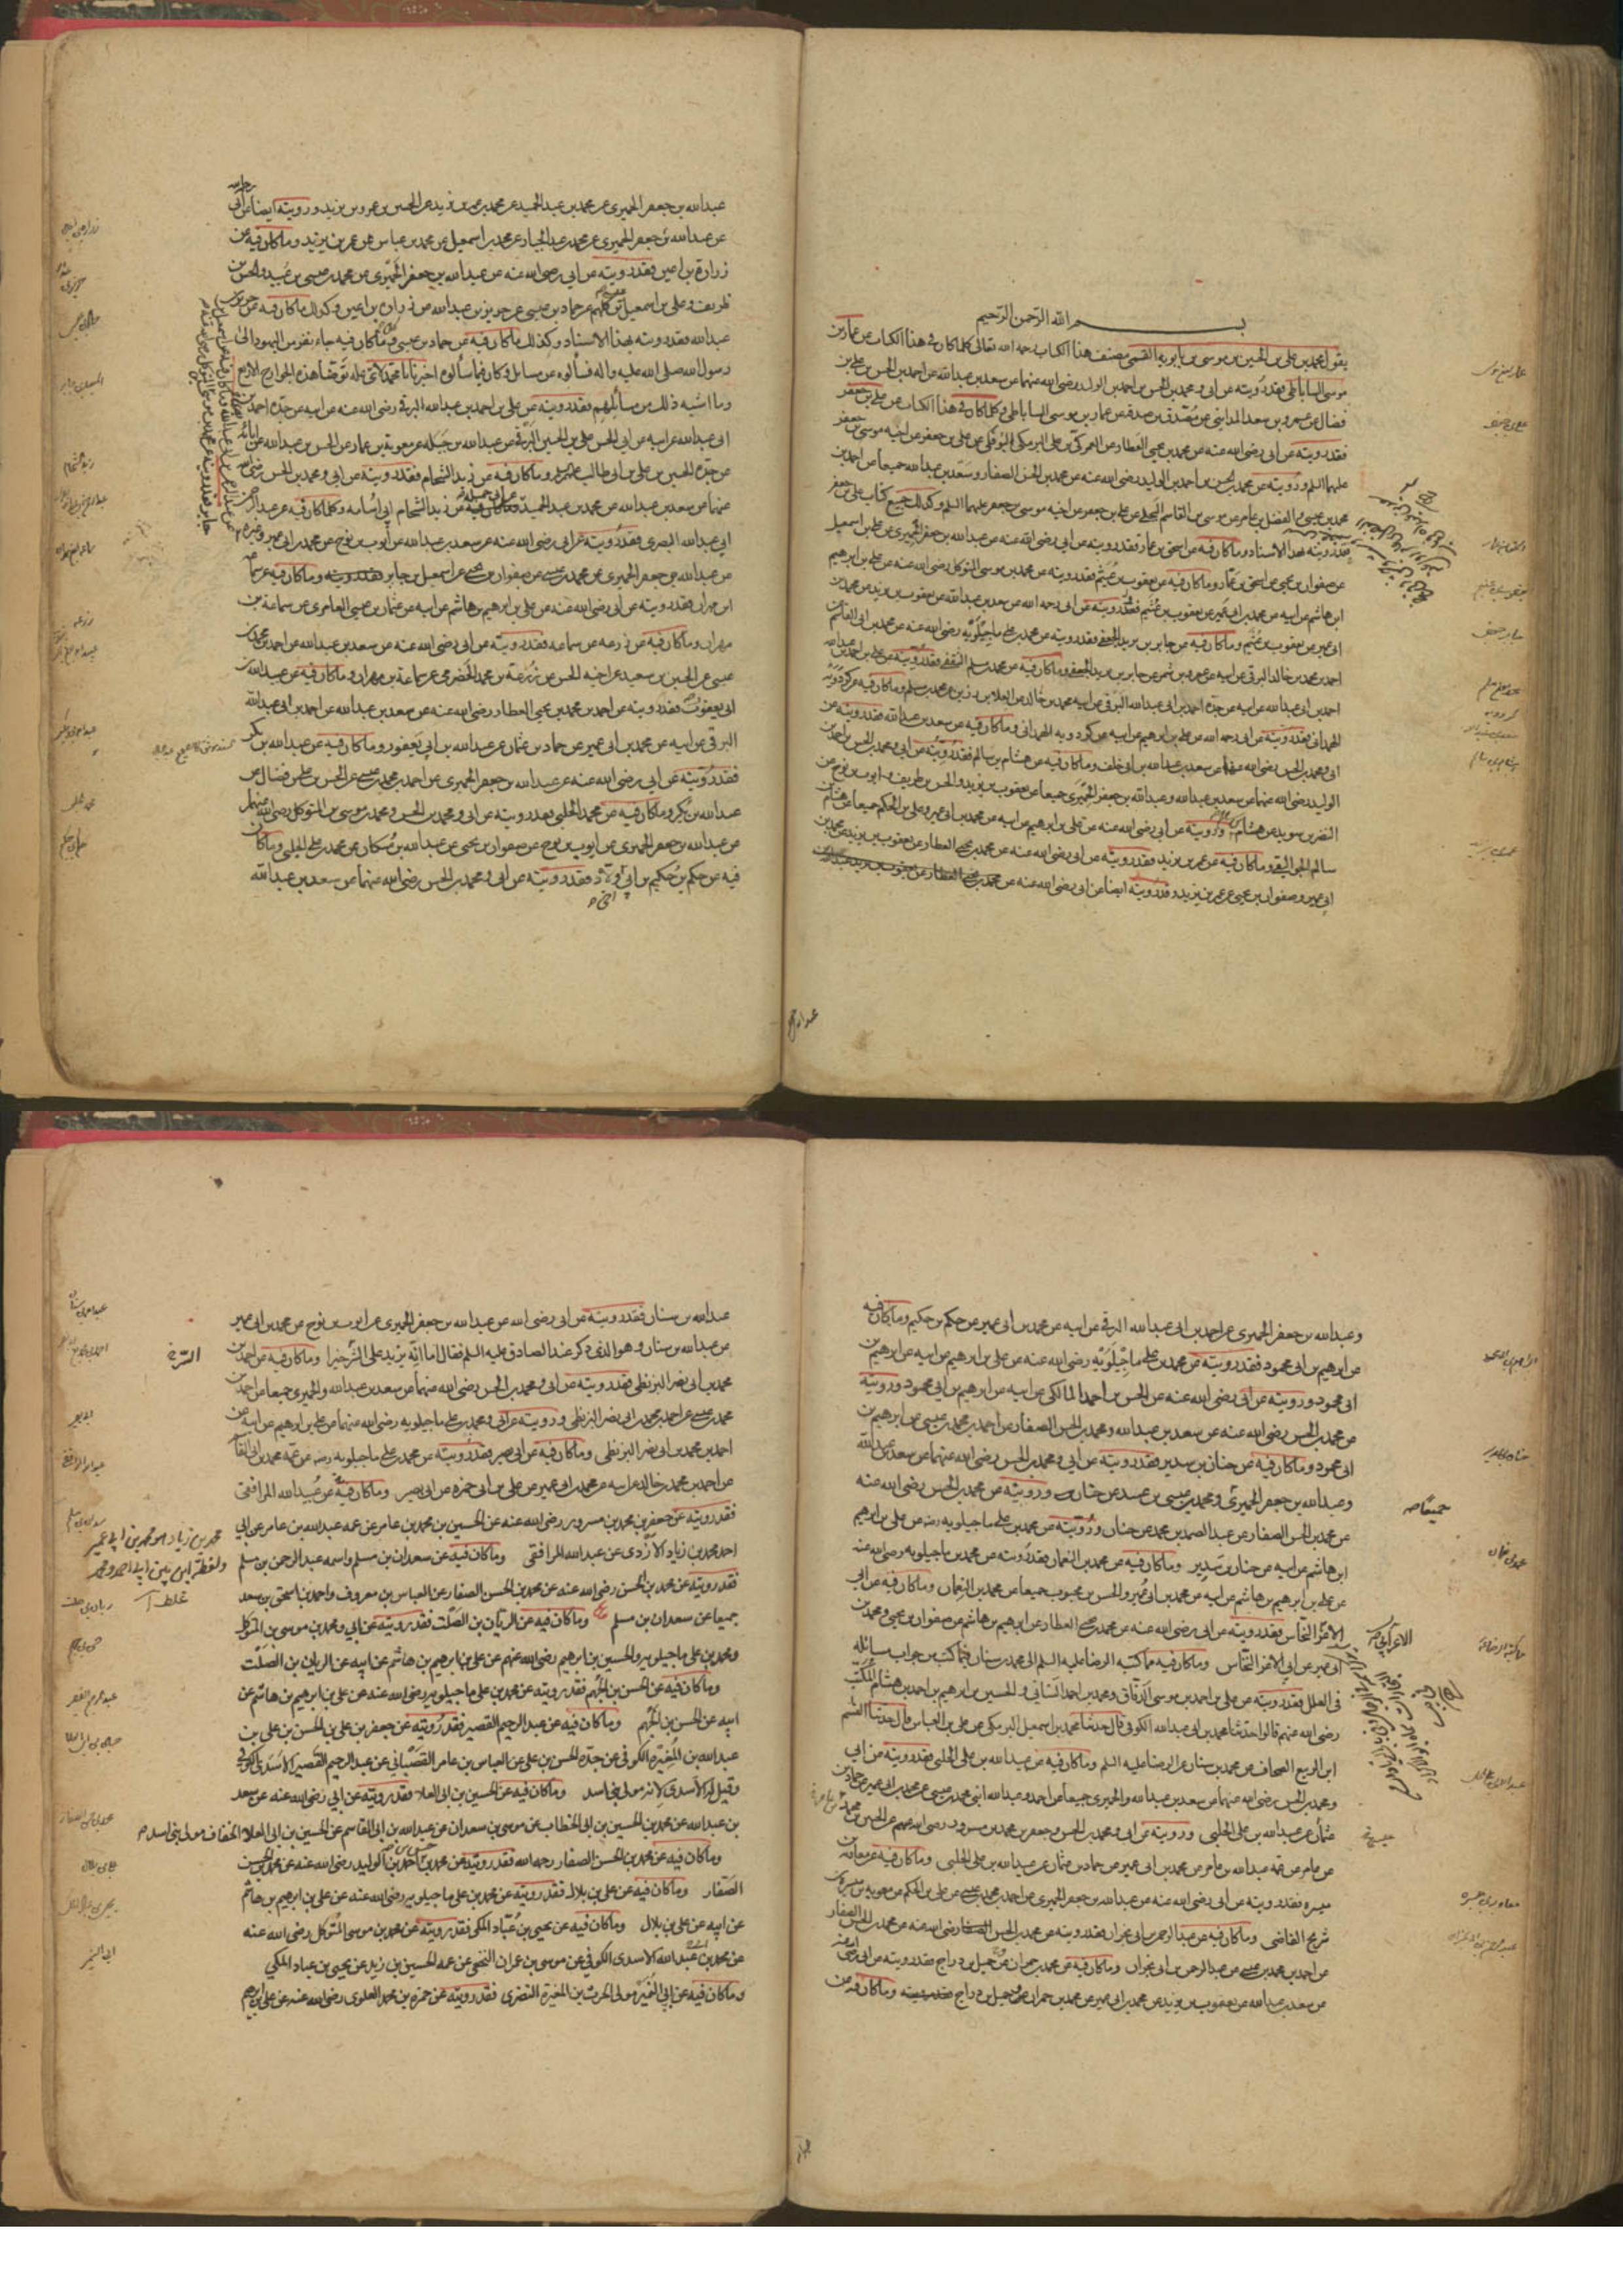 بسم الله الرحمن الرحيم
يقول محمد بن علي بن الحسين بن موسى بن بابويه القمي مصنف هذا الكتاب رحمه الله تعالى كلما كان في هذا الكتاب عن عمار بن
موسى الساباطي فقد رويته عن ابي ومحمد بن الحسن بن احمد بن الوليد رضي الله عنهما عن سعد بن عبدالله عن احمد بن الحسن بن علي بن
فضال عن عمرو بن سعد المدايني عن مصدق بن صدقه عن عمار بن موسى الساباطي وكلما كان في هذا الكتاب عن علي بن جعفر
فقد رويته عن ابي رضي الله عنه عن محمد بن يحيى العطار عن العمركي بن علي البوفكي عن علي بن جعفر عن اخيه موسى بن جعفر
عليهما السلم ورويته عن محمد بن الحسن بن احمد بن الوليد رضي الله عنه عن محمد بن الحسن الصفار وسعد بن عبدالله جميعا عن احمد بن
محمد بن عيسى والفضل بن عامر عن موسى بن القاسم البجلي عن علي بن جعفر عن اخيه موسى بن جعفر عليهما السلم وكذلك جميع كتاب علي بن جعفر
فقد رويته بهذا الاسناد وما كان فيه عن اسحق بن عمار فقد رويته عن ابي رضي الله عنه عن عبدالله بن جعفر الحميري عن علي بن اسمعيل
عن صفوان بن يحيى عن اسحق بن عمار وما كان فيه عن يعقوب بن عثيم فقد رويته عن محمد بن موسى المتوكل رضي الله عنه عن علي بن ابرهيم
ابن هاشم عن ابيه عن محمد بن ابي عمير عن يعقوب بن عثيم فقد رويته عن ابي رحمه الله عن سعد بن عبدالله عن يعقوب بن يزيد عن محمد بن
ابي عمير عن يعقوب بن عثيم وما كان فيه عن جابر بن يزيد الجعفي فقد رويته عن محمد بن علي ماجيلويه رضي الله عنه عن محمد بن ابي القاسم
احمد بن محمد بن خالد البرقي عن ابيه عن عمرو بن شمر عن جابر بن يزيد الجعفي وما كان فيه عن محمد بن مسلم الثقفي فقد رويته عن علي بن احمد بن عبدالله
احمد بن ابي عبدالله عن ابيه عن جده احمد بن ابي عبدالله البرقي عن ابيه محمد بن خالد عن العلاء بن رزين عن محمد بن مسلم وما كان فيه عن كردويه
الهمداني فقد رويته عن ابي رحمه الله عن علي بن ابرهيم عن ابيه عن كردويه الهمداني وما كان فيه عن سعد بن عبدالله فقد رويته عن
ابي ومحمد بن الحسن رضي الله عنهما عن سعد بن عبدالله بن ابي خلف وما كان فيه عن هشام بن سالم فقد رويته عن ابي ومحمد بن الحسن بن احمد بن
الوليد رضي الله عنهما عن سعد بن عبدالله وعبدالله بن جعفر الحميري جميعا عن يعقوب بن يزيد والحسن بن ظريف وايوب بن نوح عن
النضر بن سويد عن هشام ورويته عن ابي رضي الله عنه عن علي بن ابرهيم عن ابيه عن محمد بن ابي عمير وعلي بن الحكم جميعا عن هشام بن
سالم الجواليقي وما كان فيه عن عمر بن يزيد فقد رويته عن ابي رضي الله عنه عن محمد بن يحيى العطار عن يعقوب بن يزيد عن محمد بن
ابي عمير وصفوان بن يحيى عن عمر بن يزيد وقد رويته ايضا عن ابي رضي الله عنه عن
عبدالله بن جعفر الحميري عن محمد بن عبد الحميد عن محمد بن عمر بن يزيد عن الحسين بن عمر بن يزيد ورويته ايضا عن ابي
عن عبدالله بن جعفر الحميري عن محمد بن عبد الجبار عن محمد بن اسمعيل عن محمد بن عباس عن عمر بن يزيد وما كان فيه عن
زرارة بن اعين فقد رويته عن ابي رضي الله عنه عن عبدالله بن جعفر الحميري عن محمد بن عيسى بن عبيد والحسن بن
ظريف وعلي بن اسمعيل بن عيسى كلهم عن حماد بن عيسى عن حريز بن عبدالله عن زرارة بن اعين وكذلك ما كان فيه عن حريز بن
عبدالله فقد رويته بهذا الاسناد وكذلك ما كان فيه عن حماد بن عيسى وما كان فيه جاء نفر من اليهود الى
رسول الله صلى الله عليه واله فسألوه عن مسايل وكان فيما سألوه اخبرنا يا محمد لاي علة توضأ هذه الجوارح الاربع
وما اشبه ذلك من مسائلهم فقد رويته عن علي بن احمد بن عبدالله البرقي رضي الله عنه عن ابيه عن جده احمد بن
ابي عبدالله عن ابيه عن ابي الحسن علي بن الحسين البرقي عن عبدالله بن جبله عن معوية بن عمار عن الحسن بن عبدالله عن ابائه
عن جده الحسن بن علي بن ابي طالب عليهم السلم وما كان فيه عن زيد الشحام فقد رويته عن ابي ومحمد بن الحسن رضي الله
عنهما عن سعد بن عبدالله عن محمد بن عبد الحميد عن ابي جميله عن زيد الشحام ابي اسامه وكلما كان فيه عن عبد الرحمن
ابي عبدالله البصري فقد رويته عن ابي رضي الله عنه عن سعد بن عبدالله عن ايوب بن نوح عن محمد بن ابي عمير وغيره
عن عبدالله بن جعفر الحميري عن محمد بن عيسى عن صفوان بن يحيى عن اسمعيل بن جابر وما كان فيه عن سماعه
ابن مهران فقد رويته عن ابي رضي الله عنه عن علي بن ابرهيم بن هاشم عن ابيه عن عثمان بن عيسى العامري عن سماعة بن
مهران وما كان فيه عن زرعه عن سماعه فقد رويته عن ابي رضي الله عنه عن سعد بن عبدالله عن احمد بن محمد بن
عيسى عن الحسين بن سعيد عن اخيه الحسن عن زرعة بن محمد الحضرمي عن سماعة بن مهران وما كان فيه عن عبدالله بن
ابي يعفور فقد رويته عن احمد بن محمد بن يحيى العطار رضي الله عنه عن سعد بن عبدالله عن احمد بن ابي عبدالله
البرقي عن ابيه عن محمد بن ابي عمير عن حماد بن عثمان عن عبدالله بن ابي يعفور وما كان فيه عن عبدالله بن بكير
فقد رويته عن ابي رضي الله عنه عن عبدالله بن جعفر الحميري عن احمد بن محمد بن عيسى عن الحسن بن علي بن فضال عن
عبدالله بن بكير وما كان فيه عن محمد الحلبي فقد رويته عن ابي ومحمد بن الحسن ومحمد بن موسى بن المتوكل رضي الله عنهم
عن عبدالله بن جعفر الحميري عن ايوب بن نوح عن صفوان بن يحيى عن عبدالله بن مسكان عن محمد بن علي الحلبي وما كان
فيه عن حكم بن حكيم بن اخي خلاد فقد رويته عن ابي ومحمد بن الحسن رضي الله عنهما عن سعد بن عبدالله
وعبدالله بن جعفر الحميري عن احمد بن ابي عبدالله البرقي عن ابيه عن محمد بن ابي عمير عن حكم بن حكيم وما كان فيه
عن ابرهيم بن ابي محمود فقد رويته عن محمد بن علي ماجيلويه رضي الله عنه عن علي بن ابرهيم عن ابيه عن ابرهيم بن
ابي محمود ورويته عن ابي رضي الله عنه عن الحسن بن احمد المالكي عن ابيه عن ابرهيم بن ابي محمود ورويته
عن محمد بن الحسن رضي الله عنه عن سعد بن عبدالله ومحمد بن الحسن الصفار عن احمد بن محمد بن عيسى عن ابرهيم بن
ابي محمود وما كان فيه عن حنان بن سدير فقد رويته عن ابي ومحمد بن الحسن رضي الله عنهما عن سعد بن عبدالله
وعبدالله بن جعفر الحميري ومحمد بن عيسى بن عبيد عن حنان ورويته عن محمد بن الحسن رضي الله عنه
عن محمد بن الحسن الصفار عن عبد الصمد بن محمد عن حنان ورويته عن محمد بن علي ماجيلويه رضه عن علي بن ابرهيم
ابن هاشم عن ابيه عن حنان بن سدير وما كان فيه عن محمد بن النعمان فقد رويته عن محمد بن ماجيلويه رضي الله عنه
عن علي بن ابرهيم بن هاشم عن ابيه عن محمد بن ابي عمير والحسن بن محبوب جميعا عن محمد بن النعمان وما كان فيه عن ابي
الاعز النخاس فقد رويته عن ابي رضي الله عنه عن محمد بن يحيى العطار عن ابرهيم بن هاشم عن صفوان بن يحيى ومحمد بن
ابي عمير عن ابي الاعز النخاس وما كان فيه مما كتبه الرضا عليه السلم الى محمد بن سنان فيما كتب من جواب مسائله
في العلل فقد رويته عن علي بن احمد بن موسى الدقاق ومحمد بن احمد السناني والحسين بن ابرهيم بن احمد بن هشام المكتب
رضي الله عنهم قالوا حدثنا محمد بن ابي عبدالله الكوفي قال حدثنا محمد بن اسمعيل البرمكي عن علي بن العباس قال حدثنا القسم
ابن الربيع الصحاف عن محمد بن سنان عن الرضا عليه السلم وما كان فيه عن عبيدالله بن علي الحلبي فقد رويته عن ابي
ومحمد بن الحسن رضي الله عنهما عن سعد بن عبدالله والحميري جميعا عن احمد وعبدالله ابني محمد بن عيسى عن محمد بن ابي عمير عن حماد بن
عثمان عن عبيدالله بن علي الحلبي ورويته عن ابي ومحمد بن الحسن وجعفر بن محمد بن مسرور رضي الله عنهم عن الحسين بن محمد
عن عامر عن عمه عبدالله بن عامر عن محمد بن ابي عمير عن حماد بن عثمان عن عبيدالله بن علي الحلبي وما كان فيه عن معاوية بن
ميسره فقد رويته عن ابي رضي الله عنه عن عبدالله بن جعفر الحميري عن احمد بن محمد بن عيسى عن علي بن الحكم عن معوية بن ميسرة بن
شريح القاضي وما كان فيه عن عبد الرحمن بن ابي نجران فقد رويته عن محمد بن الحسن رضي الله عنه عن محمد بن الحسن الصفار
عن احمد بن محمد بن عيسى عن عبد الرحمن بن ابي نجران وما كان فيه عن محمد بن حمران وجميل بن دراج فقد رويته عن ابي رضي الله عنه
عن سعد بن عبدالله عن يعقوب بن يزيد عن محمد بن ابي عمير عن محمد بن حمران وجميل بن دراج وما كان فيه عن
عبدالله بن سنان فقد رويته عن ابي رضي الله عن عبدالله بن جعفر الحميري عن ايوب بن نوح عن محمد بن ابي عمير
عن عبدالله بن سنان وهو الذي ذكر عند الصادق عليه السلم فقال اما انه يزيد على السن خيرا وما كان فيه عن احمد بن
محمد بن ابي نصر البزنطي فقد رويته عن ابي ومحمد بن الحسن رضي الله عنهما عن سعد بن عبدالله والحميري جميعا عن احمد بن
محمد بن عيسى عن احمد بن محمد بن ابي نصر البزنطي ورويته عن ابي ومحمد بن علي ماجيلويه رضي الله عنهما عن علي بن ابرهيم عن ابيه عن
احمد بن محمد بن ابي نصر البزنطي وما كان فيه عن ابي بصير فقد رويته عن محمد بن علي ماجيلويه رضه عن عمه محمد بن ابي القاسم
عن احمد بن محمد بن خالد عن ابيه عن محمد بن ابي عمير عن علي بن ابي حمزه عن ابي بصير وما كان فيه عن عبيدالله المرافقي
فقد رويته عن جعفر بن محمد بن مسرور رضي الله عنه عن الحسين بن محمد بن عامر عن عمه عبدالله بن عامر عن ابي
احمد محمد بن زياد الازدي عن عبدالله المرافقي وما كان فيه عن سعدان بن مسلم واسمه عبد الرحمن بن مسلم
فقد رويته عن محمد بن الحسن رضي الله عنه عن محمد بن الحسن الصفار عن العباس بن معروف واحمد بن اسحق بن سعد
جميعا عن سعدان بن مسلم وما كان فيه عن الريان بن الصلت فقد رويته عن ابي ومحمد بن موسى بن المتوكل
ومحمد بن علي ماجيلويه والحسين بن ابرهيم رضي الله عنهم عن علي بن ابرهيم بن هاشم عن ابيه عن الريان بن الصلت
وما كان فيه عن الحسن بن الجهم فقد رويته عن محمد بن علي ماجيلويه رضي الله عنه عن علي بن ابرهيم بن هاشم عن
ابيه عن الحسن بن الجهم وما كان فيه عن عبد الرحيم القصير فقد رويته عن جعفر بن علي بن الحسن بن علي بن
عبدالله بن المغيرة الكوفي عن جده الحسن بن علي عن العباس بن عامر القصباني عن عبد الرحيم القصير الاسدي الكوفي
وقيل له الاسدي لانه مولى بني اسد وما كان فيه عن الحسين بن ابي العلا فقد رويته عن ابي رضي الله عنه عن سعد
بن عبدالله عن محمد بن الحسين بن ابي الخطاب عن موسى بن سعدان عن عبدالله بن ابي القاسم عن الحسين بن ابي العلاء الخفاف مولى بني اسد
وما كان فيه عن محمد بن الحسن الصفار رحمه الله فقد رويته عن محمد بن الحسن بن احمد بن الوليد رضي الله عنه عن محمد بن الحسن
الصفار وما كان فيه عن علي بن بلال فقد رويته عن محمد بن علي ماجيلويه رضي الله عنه عن علي بن ابرهيم بن هاشم
عن ابيه عن علي بن بلال وما كان فيه عن يحيى بن عباد المكي فقد رويته عن محمد بن موسى المتوكل رضي الله عنه
عن محمد بن ابي عبدالله الاسدي الكوفي عن موسى بن عمران النخعي عن عمه الحسين بن زيد عن يحيى بن عباد المكي
وما كان فيه عن ابي النمير مولى الحرث بن المغيرة النضري فقد رويته عن حمزه بن محمد العلوي رضي الله عنه عن علي بن ابرهيم
محمد بن زياد هو محمد بن ابي عمير
ولفظة ابن بين ابي احمد ومحمد
غلط